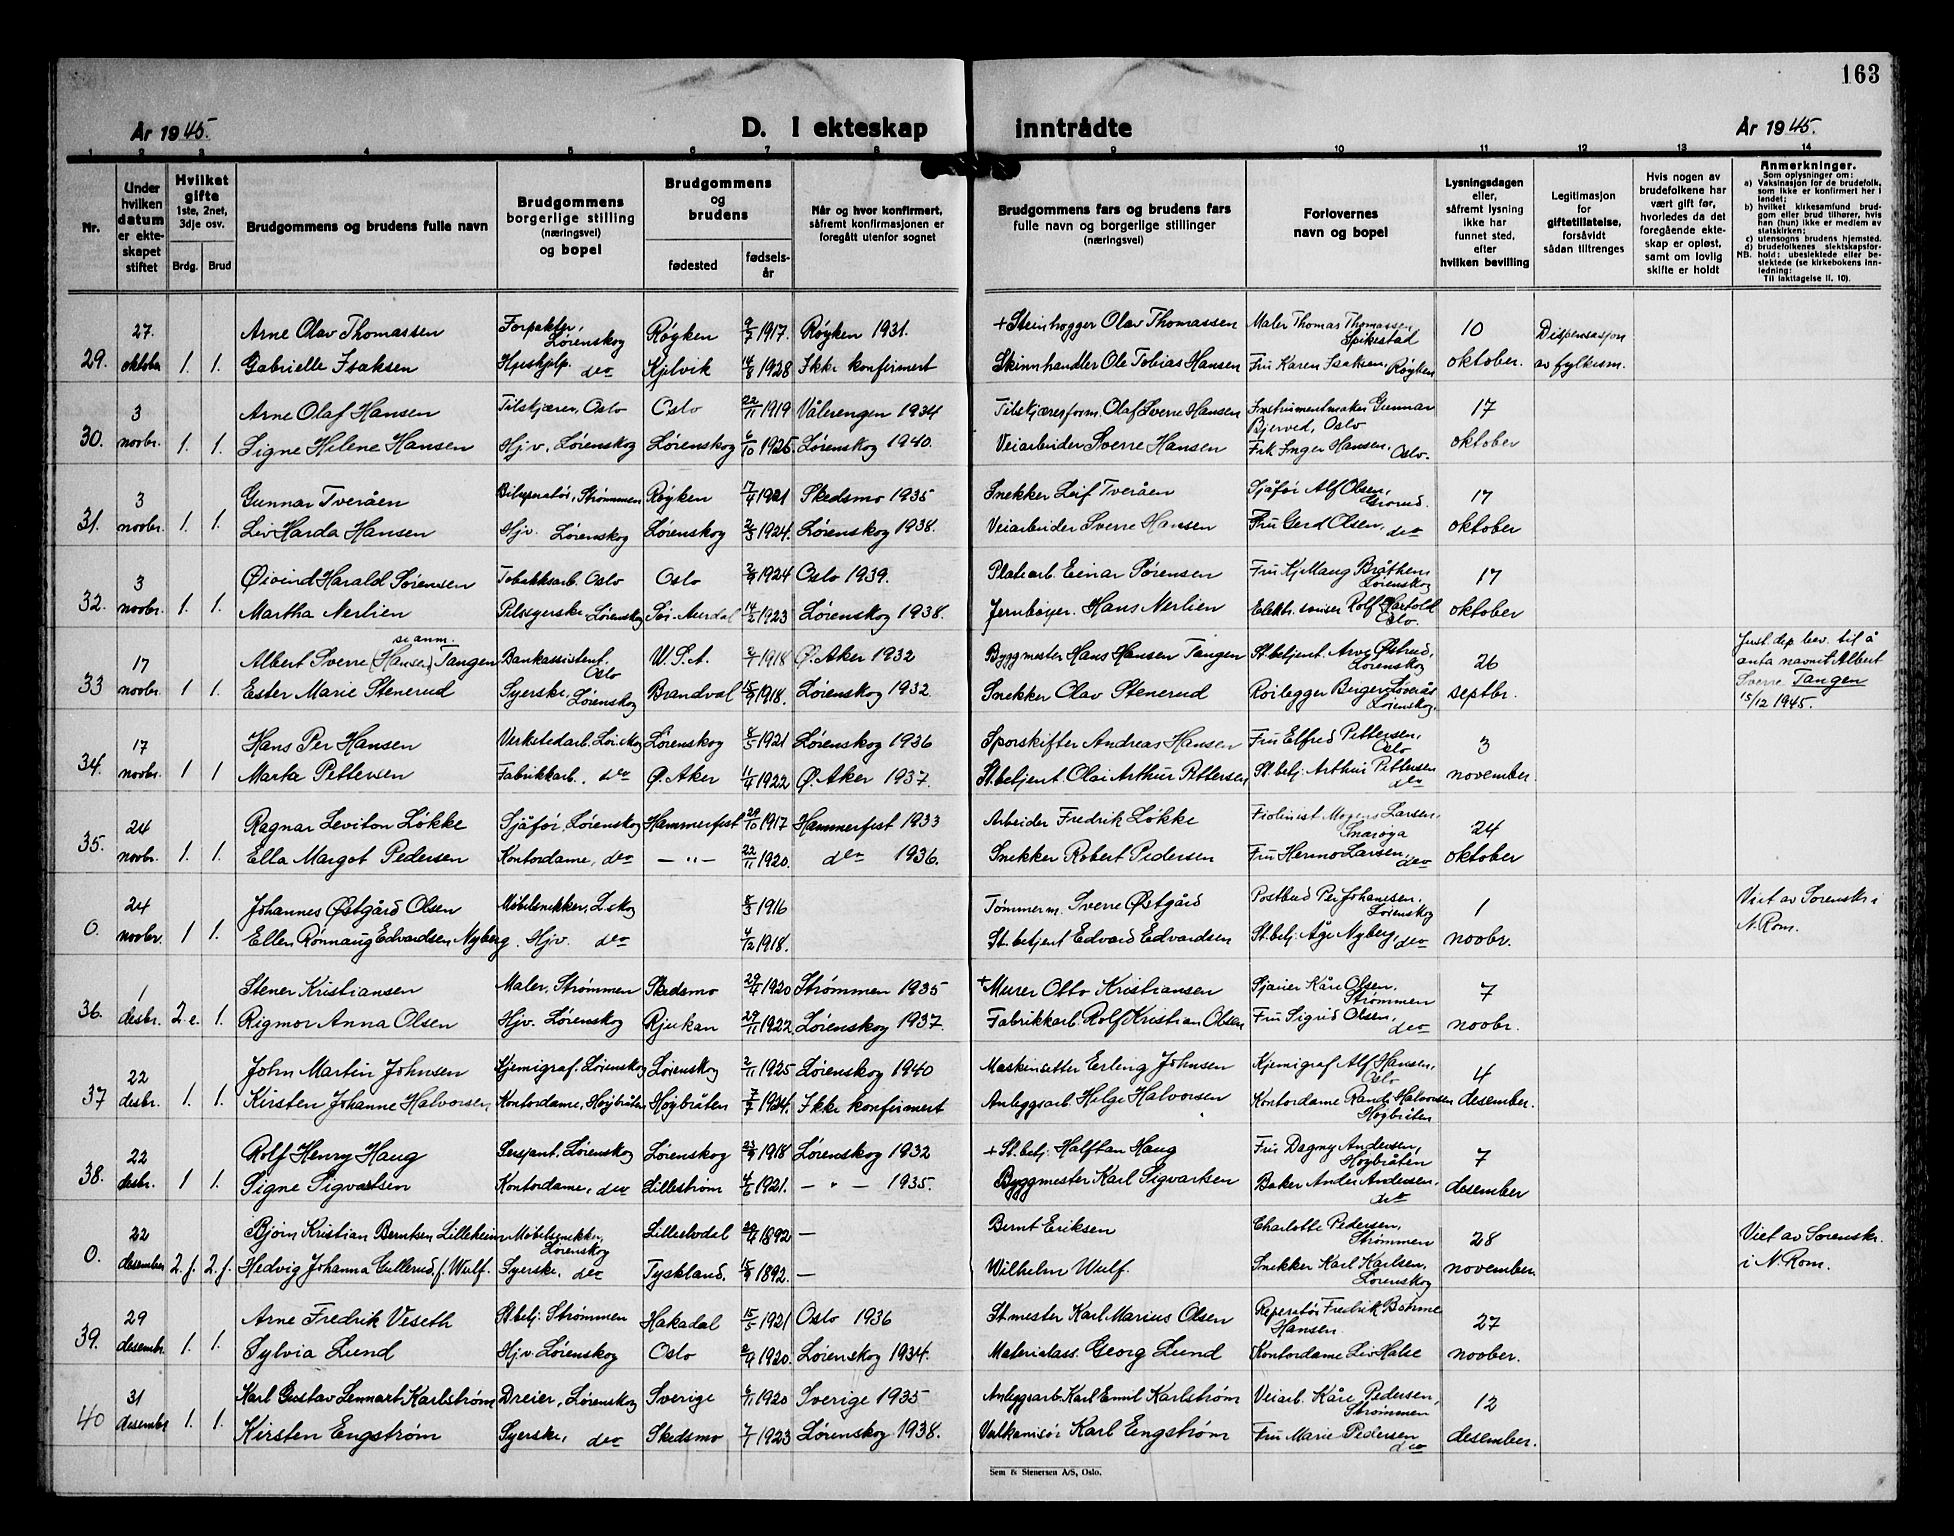 163
År 1945.
D. I ekteskap inntrådte
År 1945.
1 2 3 4 5 6 7 8 9 10 11 12 13 14
Nr.
Under hvilken datum er ekteskapet stiftet
Hvilket gifte 1ste, 2net, 3dje osv.
Brdg. Brud
Brudgommens og brudens fulle navn
Brudgommens borgerlige stilling (næringsvei) og bopel
Brudgommens og brudens
fødested
fødselsår
Når og hvor konfirmert, såfremt konfirmasjonen er foregått utenfor sognet
Brudgommens fars og brudens fars fulle navn og borgerlige stillinger (næringsvei)
Forlovernes navn og bopel
Lysningsdagen eller, såfremt lysning ikke har funnet sted, efter hvilken bevilling
Legitimasjon for giftetillatelse, forsåvidt sådan tiltrenges
Hvis nogen av brudefolkene har vært gift før, hvorledes da det foregående ekteskap er opløst, samt om lovlig skifte er holdt
Anmerkninger.
Som oplysninger om:
a) Vaksinasjon for de brudefolk, som ikke er konfirmert her i landet:
b) hvilket kirkesamfund brudgom eller brud tilhører, hvis han (hun) ikke er medlem av statskirken;
c) utensogns brudens hjemsted.
d) brudefolkenes slektskapsforhold: ubeslektede eller beslektede (se kirkebokens innledning:
NB. Til iakttagelse II. 10).
27. Arne Olav Thomassen Forpakter, Lørenskog Røyken 9/7 1917. Røyken 1931. + Steinhogger Olav Thomassen Maler Thomas Thomassen, Spikestad 10 Dispensasjon
29. oktober 1. 1. Gabrielle Isaksen Hushjelp. do Kjelvik 14/8 1928 Ikke konfirmert Skinnhandler Ole Tobias Hansen Fru Karen Isaksen, Røyken oktober. av fylkesm.
3 Arne Olaf Hansen Tilskjærer, Oslo Oslo 22/11 1919 Vålerengen 1934 Tilskjærerform. Olaf Sverre Hansen Instrumentmaker Gunnar Bjerved, Oslo 17
30. novbr. 1. 1. Signe Helene Hansen Hjv. Lørenskog Lørenskog 6/10 1925. Lørenskog 1940. Veiarbeider Sverre Hansen Frk. Inger Hansen, Oslo. oktober
3 Gunnar Tveråen Bilreparatør, Strømmen Røyken 17/4 1921 Skedsmo 1935 Snekker Leif Tveråen Sjåfør Alf Olsen, Grorud. 17
31. novbr. 1. 1. Liv Harda Hansen Hjv. Lørenskog Lørenskog 2/3 1924. Lørenskog 1938. Veiarbeider Sverre Hansen Fru Gerd Olsen, do oktober
3 Øivind Harald Sørensen Tobakksarb. Oslo Oslo 1924 Oslo 1939. Platearb. Einar Sørensen Fru Kj. Maug Bråthen, Lørenskog 17
32. novbr. 1. 1. Martha Nerlien Pelssyerske Lørenskog Sør-Aurdal 14/2 1923 Lørenskog 1938. Jernbøyer. Hans Nerlien Rolf Hartold Oslo. oktober
se anm.
17 Albert Sverre (Hansen) Tangen Bankassistent. Oslo U.S.A. 1918 Ø. Aker 1932 Byggmester Hans Hansen Tangen St.betjent. Arve Østrud, Lørenskog 26 Just. dep. bev. til å anta navnet Albert Sverre Tangen 15/12 1945.
33 novbr. 1 1. Ester Marie Stenerud Syerske, Lørenskog Brandval 15/9 1918. Lørenskog 1932. Snekker Olav Stenerud Rørlegger Birger Løverås Lørenskog. septbr.
17 Hans Per Hansen Verkstedarb. Lør.skog Lørenskog 8/5 1921 Lørenskog 1936 Sporskifter Andreas Hansen Fru Elfred Pettersen, Oslo 3
34. novbr. 1 1 Marta Pettersen Fabrikkarb. do Ø. Aker 11/4 1922 Ø. Aker 1937. St.betjent. Olai Arthur Pettersen, St.betj. Arthur Pettersen do november.
24 Ragnar Leviton Løkke Sjåfør, Lørenskog Hammerfest 20/10 1917 Hammerfest 1933 Arbeider Fredrik Løkke Fiolinist Mogens Larsen, Snarøya 24
35. novbr. 1. 1. Ella Margot Pedersen Kontordame, do — „ — 22/11 1920. do 1936. Snekker Robert Pedersen Fru Hermo Larsen, do oktober
24 Johannes Østgård Olsen Møbelsnekker, L.skog 8/3 1916 Tømmerm. Sverre Østgård Postbud Per Johanesen, Lørenskog 1 Viet av Sorenskr. i
0. novbr. 1 1. Ellen Rønnaug Edvardsen Nyberg. Hjv. do 4/12 1918. St. betjent Edvard Edvardsen St.betj. Åge Nyberg, do novbr. N. Rom.
1 Stener Kristiansen Maler, Strømmen Skedsmo 29/4 1920 Strømmen 1935 + Murer Otto Kristiansen Sjauer Kåre Olsen, Strømmen 7
36. desbr. 2. e. 1. Rigmor Anna Olsen Hjv. Lørenskog Rjukan 29/11 1922. Lørenskog 1937. Fabrikkarb. Rolf Kristian Olsen Fru Sigrid Olsen, do novbr.
22 John Martin Johnsen Kjemigraf. Lørenskog Lørenskog 2/11 1925 Lørenskog 1940 Maskinsetter Erling Johnsen Kjemigraf Alf Hansen, Oslo 4
37 desbr. 1. 1. Kirsten Johanne Halvorsen, Kontordame, Høybråten Høybråten 7/7 1924. Ikke konfirmert Anleggsarb. Helge Halvorsen Kontordame Randi Halvorsen Høybråten desember.
22 Rolf Henry Haug Sersjant, Lørenskog Lørenskog 23/9 1918 Lørenskog 1932 + St.betj. Halftan Haug Fru Dagny Andersen, Høybråten 7
38. desbr. 1 1. Signe Sigvartsen Kontordame, do Lillestrøm 4/6 1921. — „ — 1935. Byggmester Karl Sigvartsen Baker Andes Andersen, do desember
22 Bjørn Kristian Berntsen Lilleheim Møbelsnekker, Lørenskog Lilleelvdal 29/4 1892 — Bernt Eriksen Charlotte Pedersen, Strømmen 28 Viet av Sorenskr.
0. desember 2. f. 2. f. Hedvig Johanna Gullerud, f. Wulf. Syerske, do Tyskland. 15/9 1892. — Wilhelm Wulf. Snekker Karl Karlsen, Lørenskog november. i N. Rom.
29 Arne Fredrik Veseth St.betj. Strømmen Hakadal 15/5 1921 Oslo 1936 St.mester Karl Marius Olsen Reperatør Fredrik Bøhme Hansen 27
39. desembr. 1. 1. Sylvia Lund Hjv. Lørenskog Oslo 8/9 1920. Lørenskog 1934. Materialass. Georg Lund Kontordame Liv Halse noober.
31 Karl Gustav Lennart Karlstrøm Dreier, Lørenskog Sverige 1920 Sverige 1935 Anleggsarb. Karl Emil Karlstrøm Veiarb. Kåre Pedersen, Strømmen 12
40 desembr 1. 1. Kirsten Engstrøm Syerske, do Skedsmo 7/7 1923 Lørenskog 1938. Vulkanisør Karl Engstrøm Fru Marie Pedersen do desember.
Sem & Stenersen A/S, Oslo.